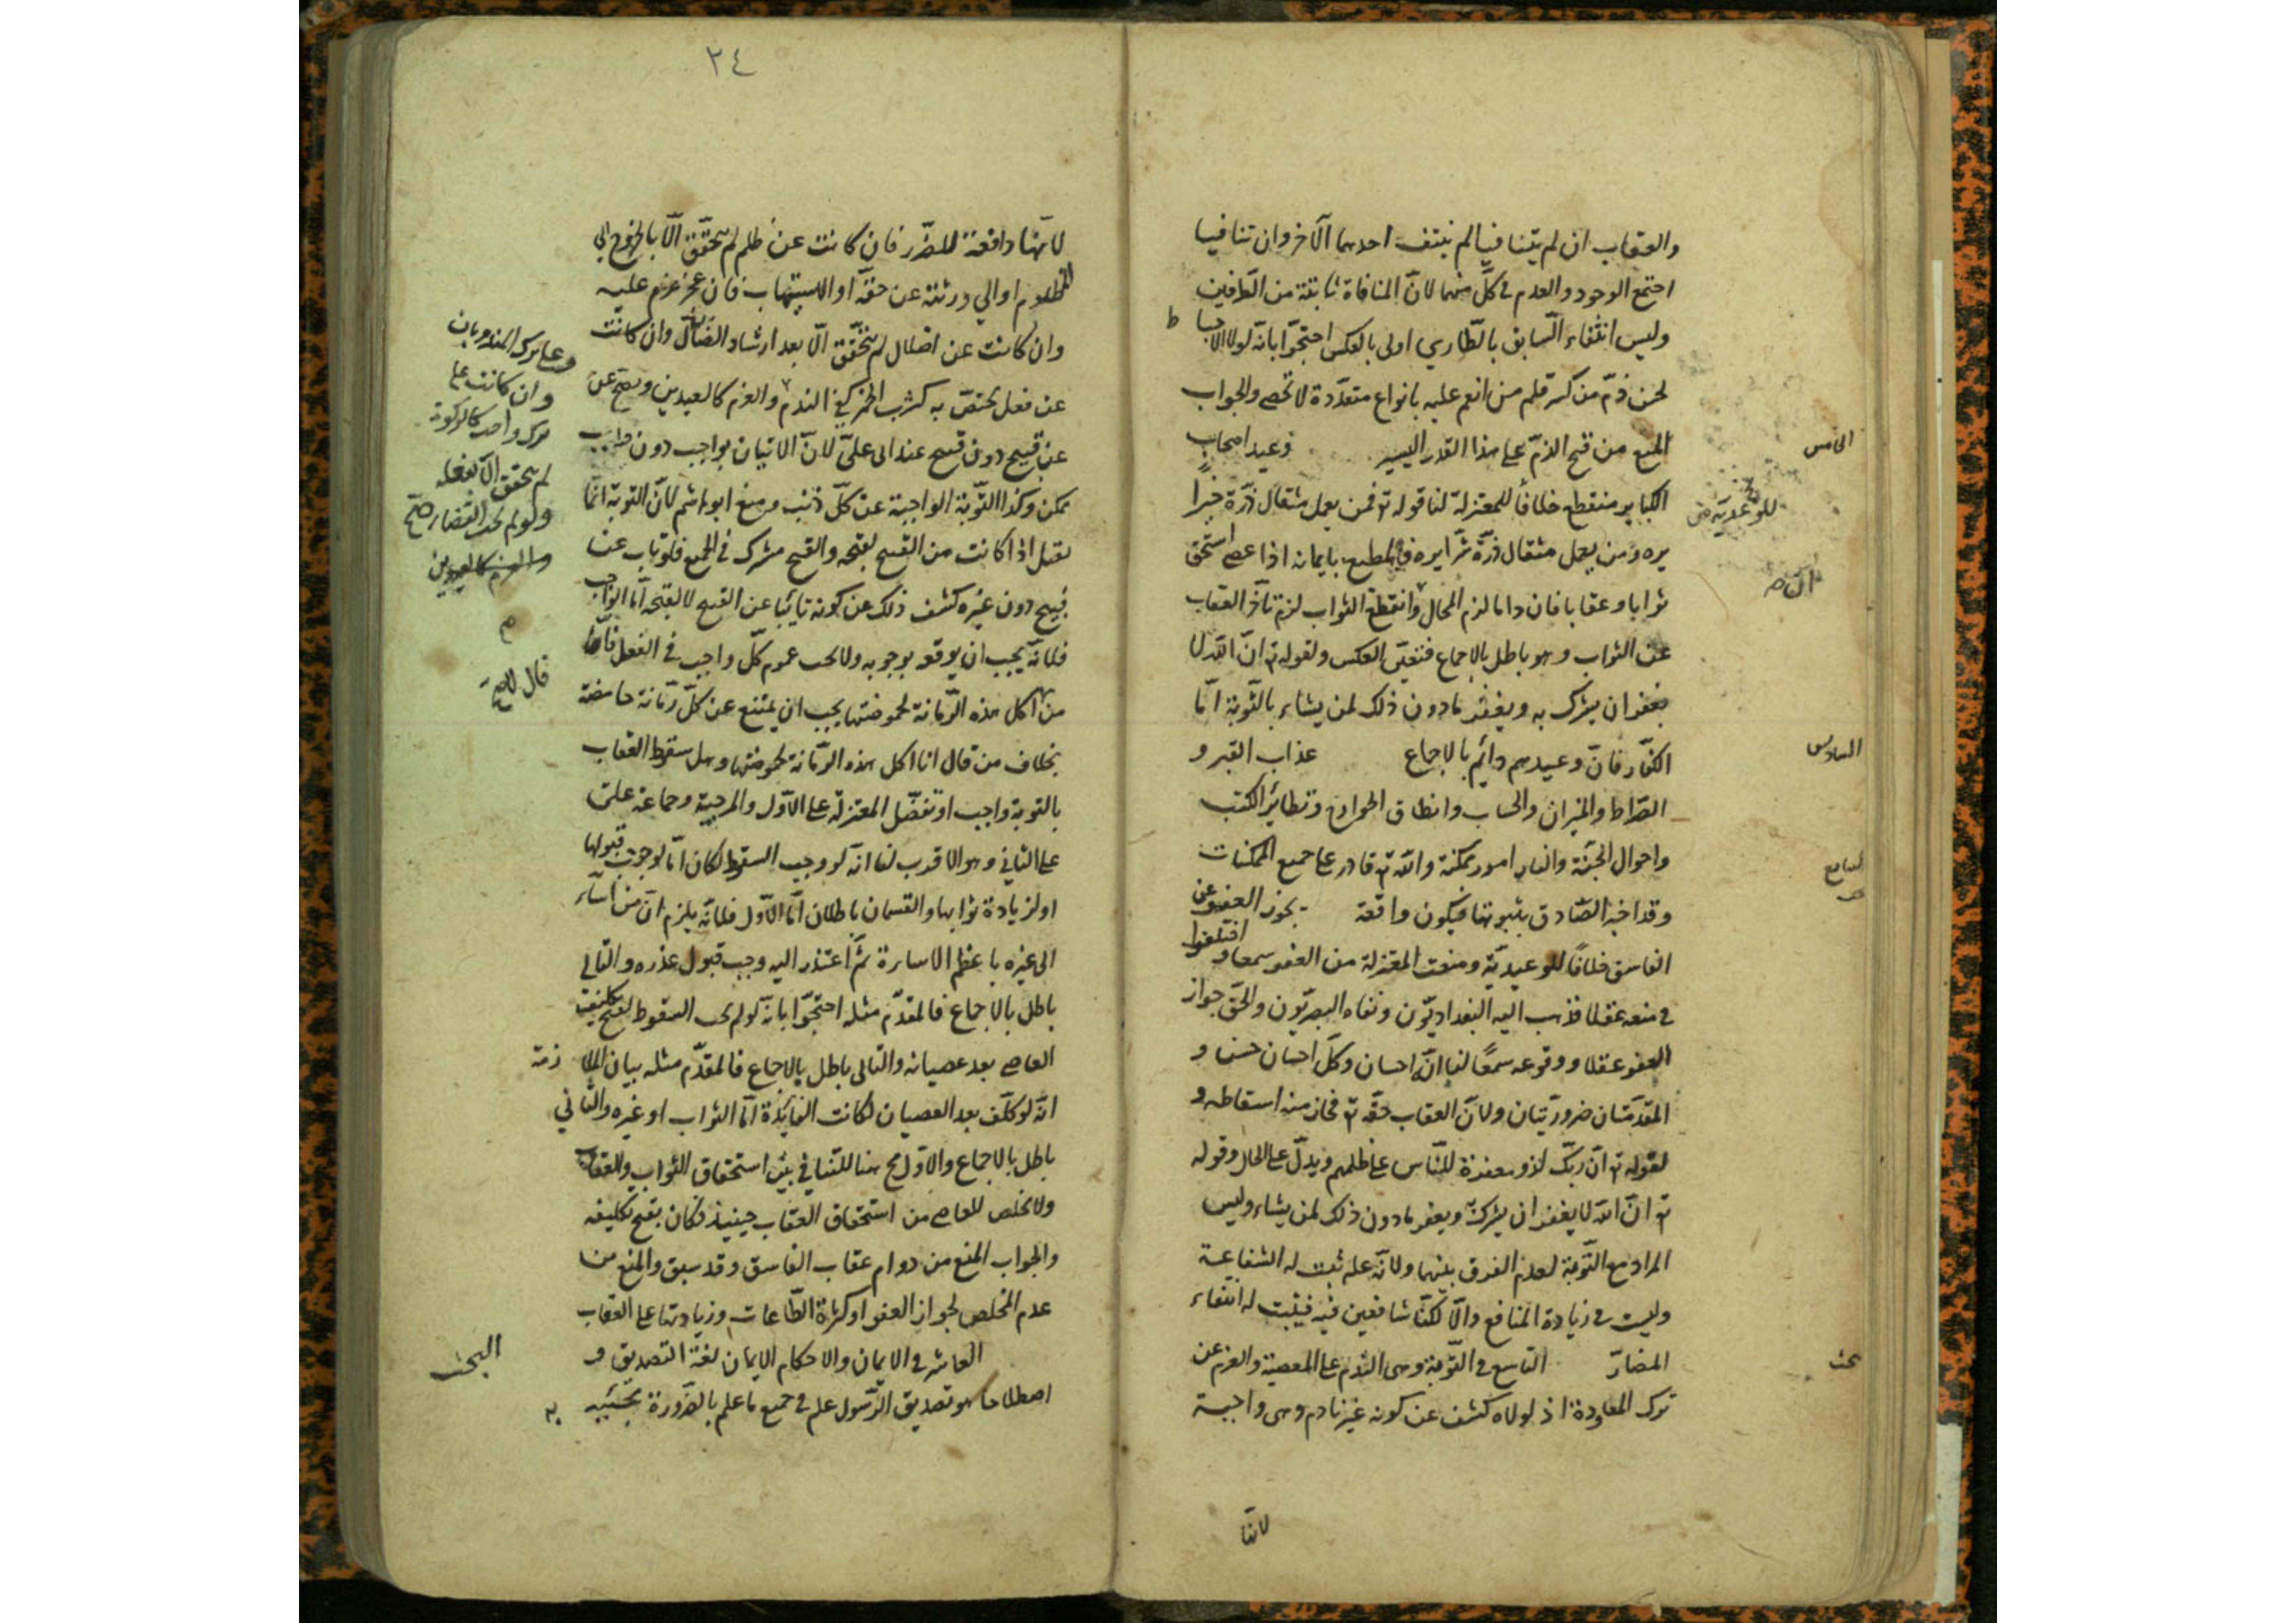 والعقاب ان لم يتنافيا لم ينتف احدهما الآخر وان تنافيا
اجتمع الوجود والعدم في كلّ منهما لانّ المنافاة ثابتة من الطرفين
وليس انتفاء السّابق بالطّاري اولى بالعكس احتجّوا بانّه لولا الاحبا ط
لحسن ذمّ من كسر قلم من انعم عليه بانواع متعدّدة لا تحصى والجواب
الخامس
المنع من قبح الذمّ على هذا القدر اليسير وعيد اصحاب
الكباير منقطع خلافاً للمعتزلة لنا قوله تع فمن يعمل مثقال ذرّة خيراً
للوعيدية خ
يره ومن يعمل مثقال ذرّة شرّا يره فالمطيع بايمانه اذا عصى استحق
ثوابا وعقابا فان داما لزم المحال وانقطع الثواب لزم تأخّر العقاب
عن الثواب وهو باطل بالاجماع فتعيّن العكس ولقوله تع انّ الله لا
يغفر ان يشرك به ويغفر مادون ذلك لمن يشاء بالتّوبة امّا
السادس
الكفّار فانّ وعيدهم دائم بالاجماع عذاب القبر و
الصّراط والميزان والحساب وانطاق الجوارح وتطائر الكتب
واحوال الجنّة والنار امور ممكنة والله تع قادر على جميع الممكنات
السابع
وقد اخبر الصّادق بثبوتها فيكون واقعة يجوز العفو عن
الفاسق خلافاً للوعيديّة ومنعت المعتزلة من العفو سمعا و اختلفوا
في منعه عقلا فذهب اليه البغداديّون ونفاه البصريّون والحقّ جواز
العفو عقلا ووقوعه سمعاً لنا انّه احسان وكلّ احسان حسن و
المقدّمتان ضروريّتان ولانّ العقاب حقّه تع فجاز منه اسقاطه و
لقوله تع انّ ربّك لذو مغفرة للنّاس على ظلمهم ويدلّ على الحال وقوله
تع انّ الله لا يغفر ان يشرك به ويغفر مادون ذلك لمن يشاء وليس
المراد مع التّوبة لعدم الفرق بينهما ولانّه علم ثبت له الشفاعة
وليست في زيادة المنافع والّا لكنّا شافعين فيه فيثبت له انتفاء
بحث
المضارّ التاسع في التّوبة وهى النّدم على المعصية والعزم عن
ترك المعاودة اذ لولاه كشف عن كونه غير نادم وهى واجبة
لانّها
٢٤
لانّها دافعة للضّرر فان كانت عن ظلم لم تتحقّق الّا بالخروج الى
المظلوم او الى ورثته عن حقّه او الاستيهاب فان عجز عزم عليه
وان كانت عن اضلال لم تتحقّق الّا بعد ارشاد الضّالّ وان كانت
عن فعل يختصّ به كشرب الخمر كفى الندم والعزم كالعيدين ويصحّ عن
عن قبيح دون قبيح عند ابى علىّ لانّ الاتيان بواجب دون واجب
ممكن وكذا التّوبة الواجبة عن كلّ ذنب ومنع ابوهاشم لانّ التوبة انّما
تقبل اذا كانت من القبيح لقبحه والقبح مشترك في الجميع فلو تاب عن
قبيح دون غيره كشف ذلك عن كونه تائبا عن القبيح لا لقبحه امّا الواجب
فلانّه يجب ان يوقعه لوجوبه ولا يجب عموم كلّ واجب في الفعل
من اكل هذه الرّمانة لحموضتها يجب ان يمتنع عن كلّ رمّانة حامضة
بخلاف من قال انا اكل هذه الرمّانة لحموضتها وهل سقوط العقاب
بالتوبة واجب او تفضّل المعتزلة على الاوّل والمرجية وجماعة
على الثاني وهو الاقرب لنا انّه لو وجب السقوط لكان امّا لوجوب قبولها
او لزيادة ثوابها والقسمان باطلان امّا الاوّل فلانّه يلزم انّ من اساء
الى غيره باعظم الاساءة ثمّ اعتذر اليه وجب قبول عذره والتالي
باطل بالاجماع فالمقدّم مثله احتجّوا بانّه لو لم يجب السقوط لقبح تكليف
العاصى بعد عصيانه والتالى باطل بالاجماع فالمقدّم مثله بيان الملا زمة
انّه لو كلّف بعد العصيان لكانت الفايدة امّا الثواب او غيره والثاني
باطل بالاجماع والاوّل مح هنا للتنافي بين استحقاق الثواب والعقاب
ولا مخلص للعاصى من استحقاق العقاب حينيذ فكان يقبح تكليفه
والجواب المنع من دوام عقاب الفاسق وقد سبق والمنع من
عدم المخلص لجواز العفو او كثرة الطّاعات وزيادتها على العقاب
البحث
العاشر في الايمان والاحكام الايمان لغة التصديق و
اصطلاحا هو تصديق الرّسول علم في جميع ما علم بالضّرورة مجيئه به
وعلى ترك المندوبات
وان كانت على
ترك واجب كالزكوة
لم يتحقق الّا بفعله
والعزم كالعيدين